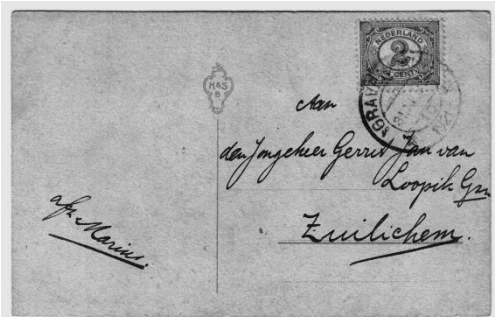 NEDERLAND
2
CENT
H&S
B
Aan
den Jongeheer Gerrit Jan van
Loopik Gzn
Zuilichem.
afz. Marius.